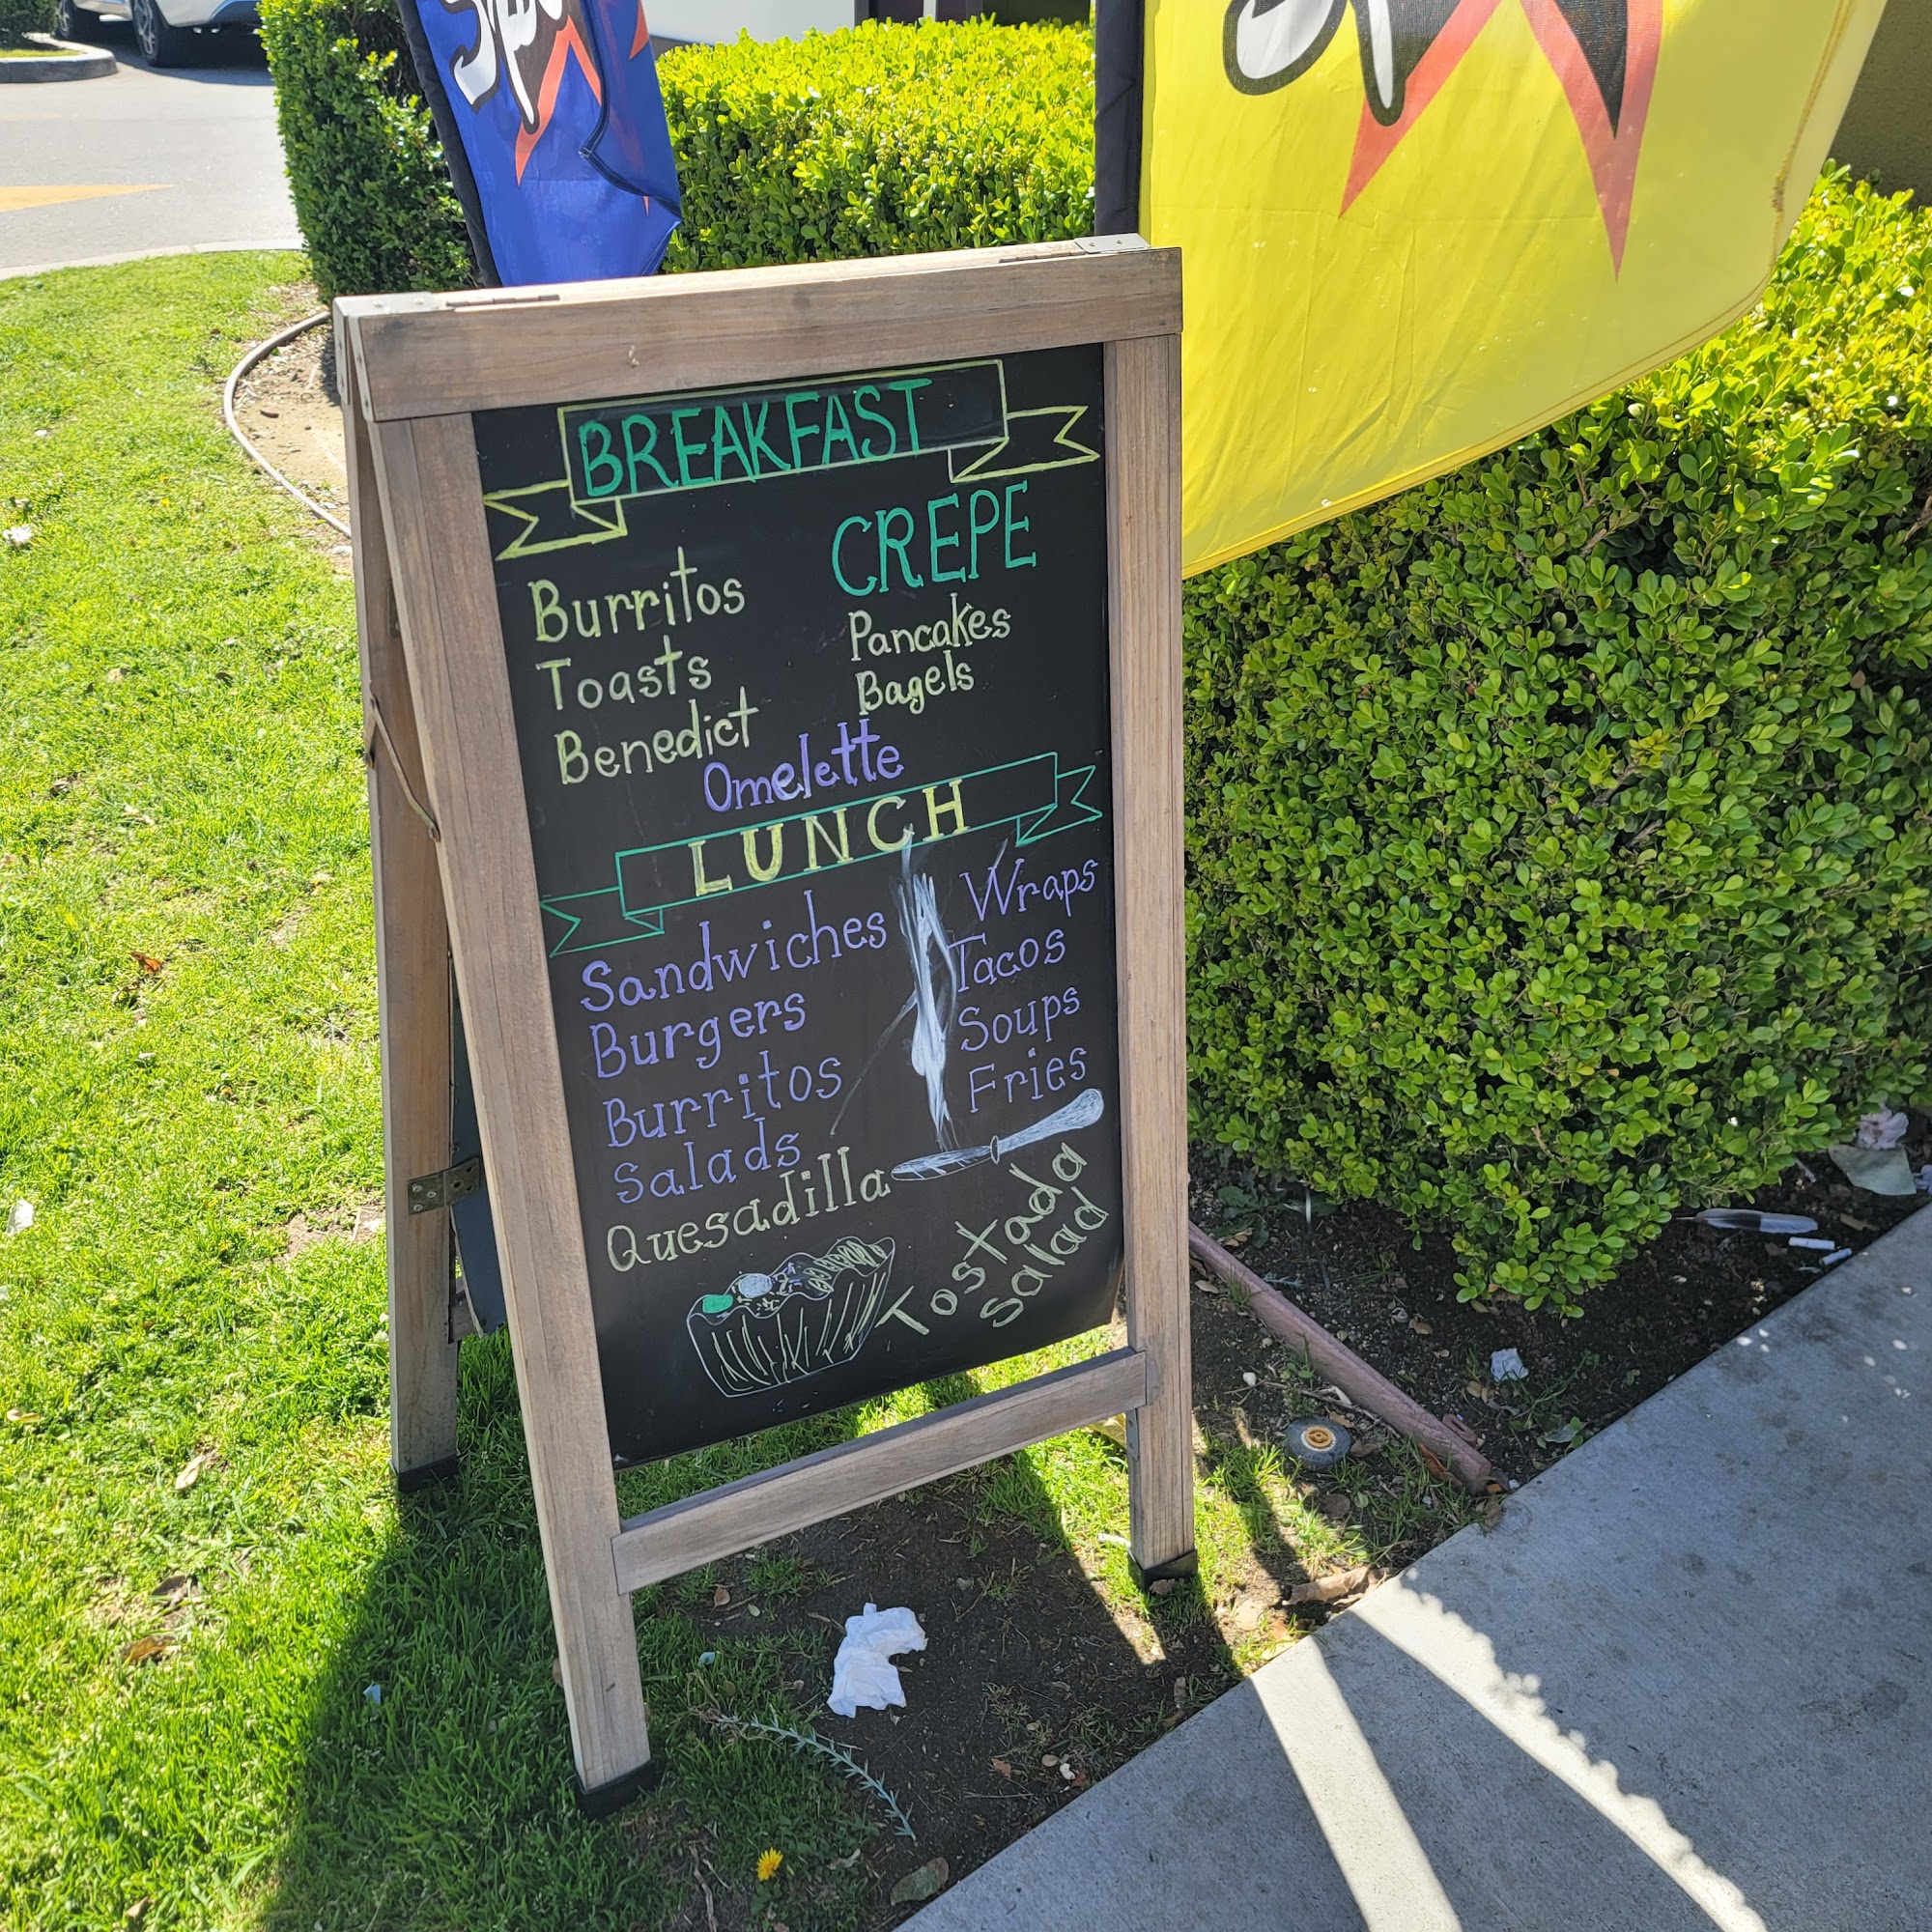 BREAKFAST
CREPE
Burritos
Toasts
Benedict
Pancakes
Bagels
Omelette
LUNCH
Sandwiches
Burgers
Burritos
Salads
Quesadilla
Wraps
Tacos
Soups
Fries
Tostada
Salad